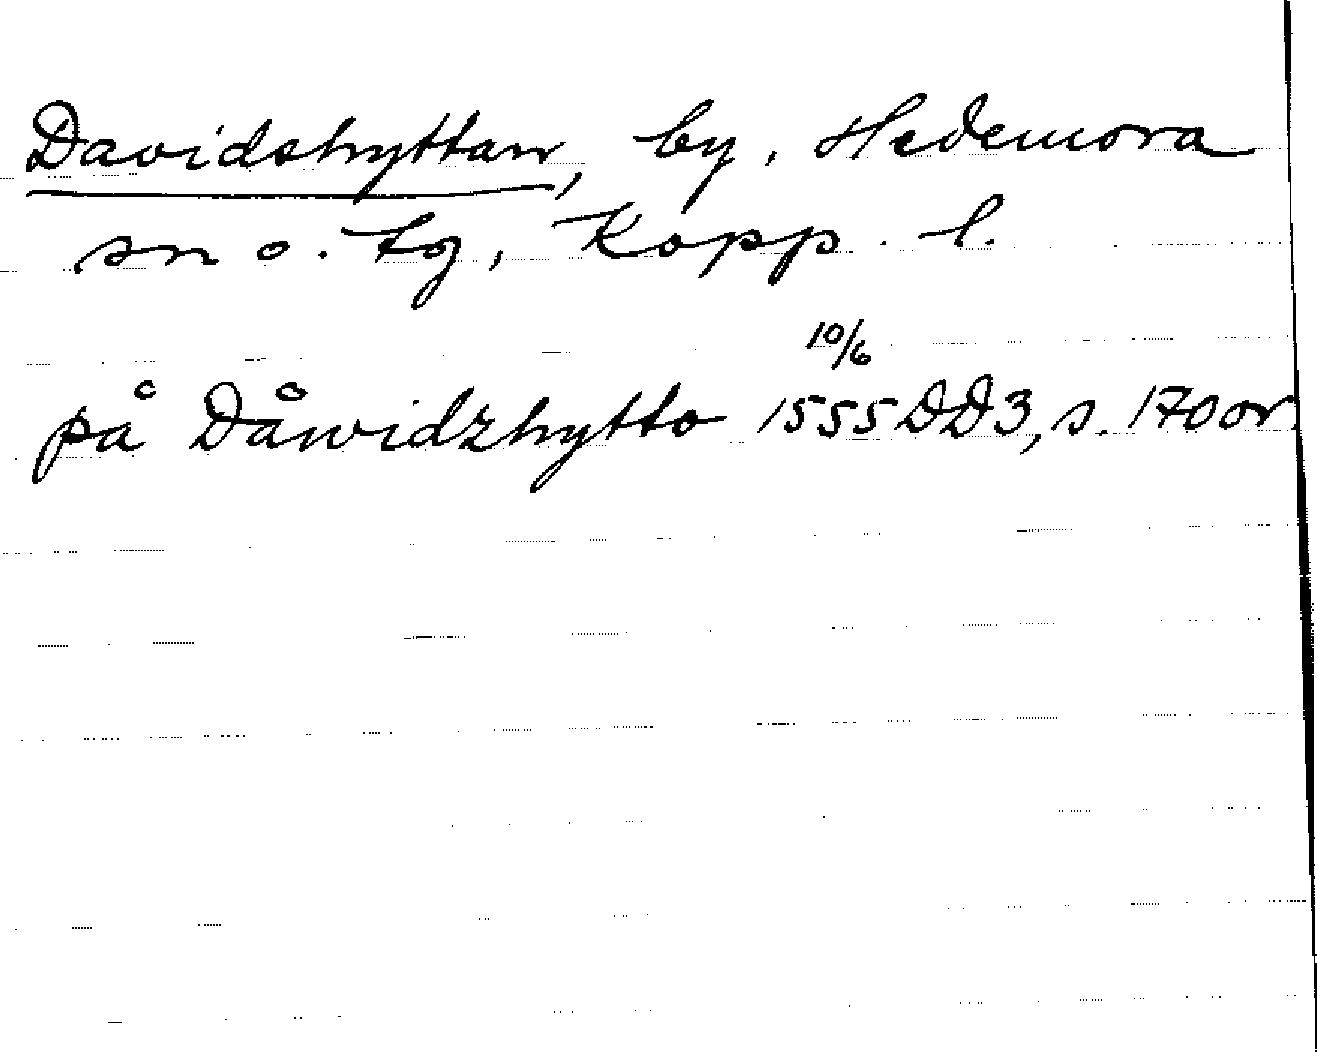 Davidshyttan, by, Hedemora
sn o. tg, Kopp. l.
10/6
på Dåwidzhytto 1555 DD3, s. 170 or.